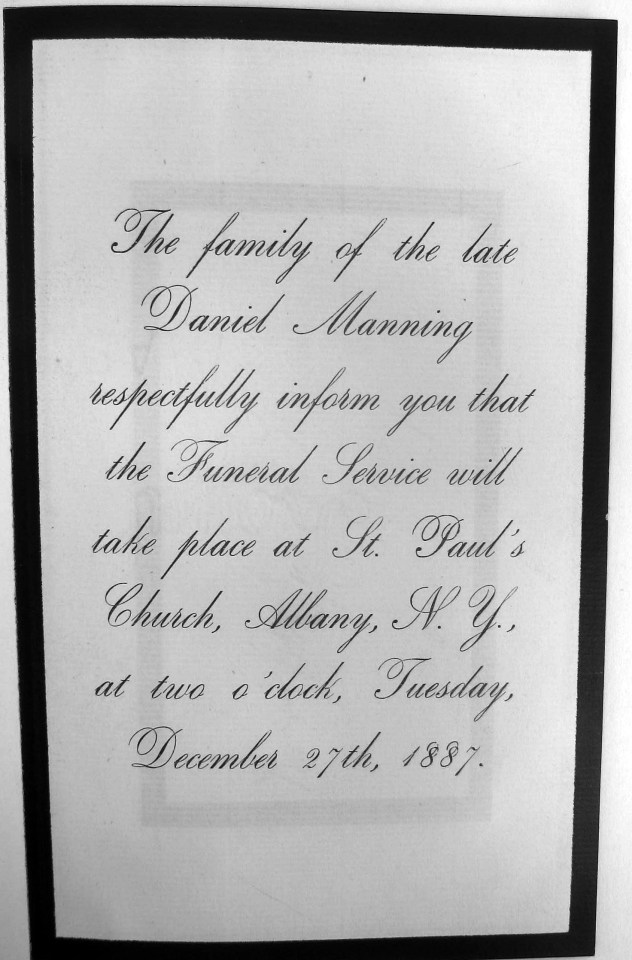 The family of the late
Daniel Manning
respectfully inform you that
the Funeral Service will
take place at St. Paul's
Church, Albany, N. Y.,
at two o'clock, Tuesday,
December 27th, 1887.